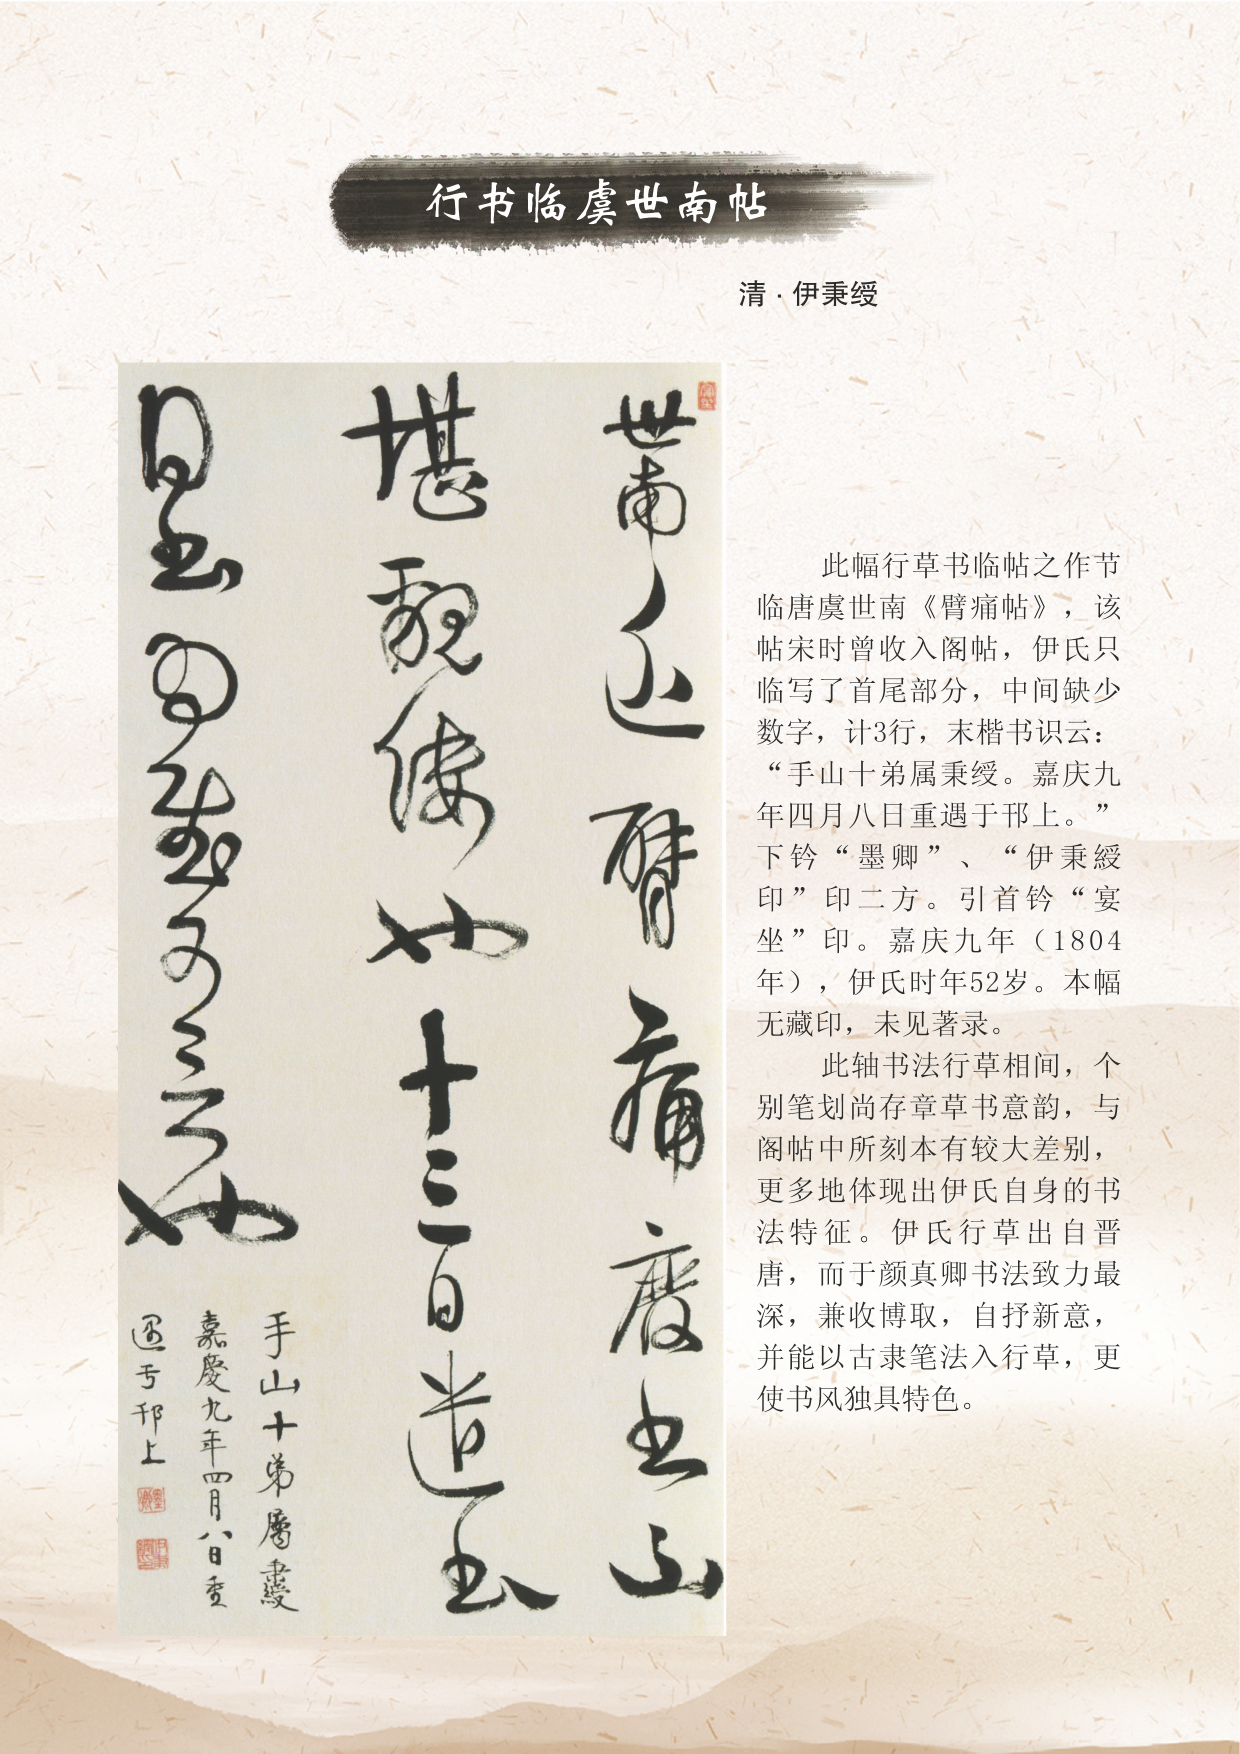 行书临虞世南帖
清·伊秉绶
世南近臂痛廢書不
堪 也十三日遣書
也
手山十弟屬秉綬
嘉慶九年四月八日重
遇于邗上
此幅行草书临帖之作节
临唐虞世南《臂痛帖》，该
帖宋时曾收入阁帖，伊氏只
临写了首尾部分，中间缺少
数字，计3行，末楷书识云：
“手山十弟属秉绶。嘉庆九
年四月八日重遇于邗上。”
下钤“墨卿”、“伊秉綬
印”印二方。引首钤“宴
坐”印。嘉庆九年（1804
年），伊氏时年52岁。本幅
无藏印，未见著录。
此轴书法行草相间，个
别笔划尚存章草书意韵，与
阁帖中所刻本有较大差别，
更多地体现出伊氏自身的书
法特征。伊氏行草出自晋
唐，而于颜真卿书法致力最
深，兼收博取，自抒新意，
并能以古隶笔法入行草，更
使书风独具特色。